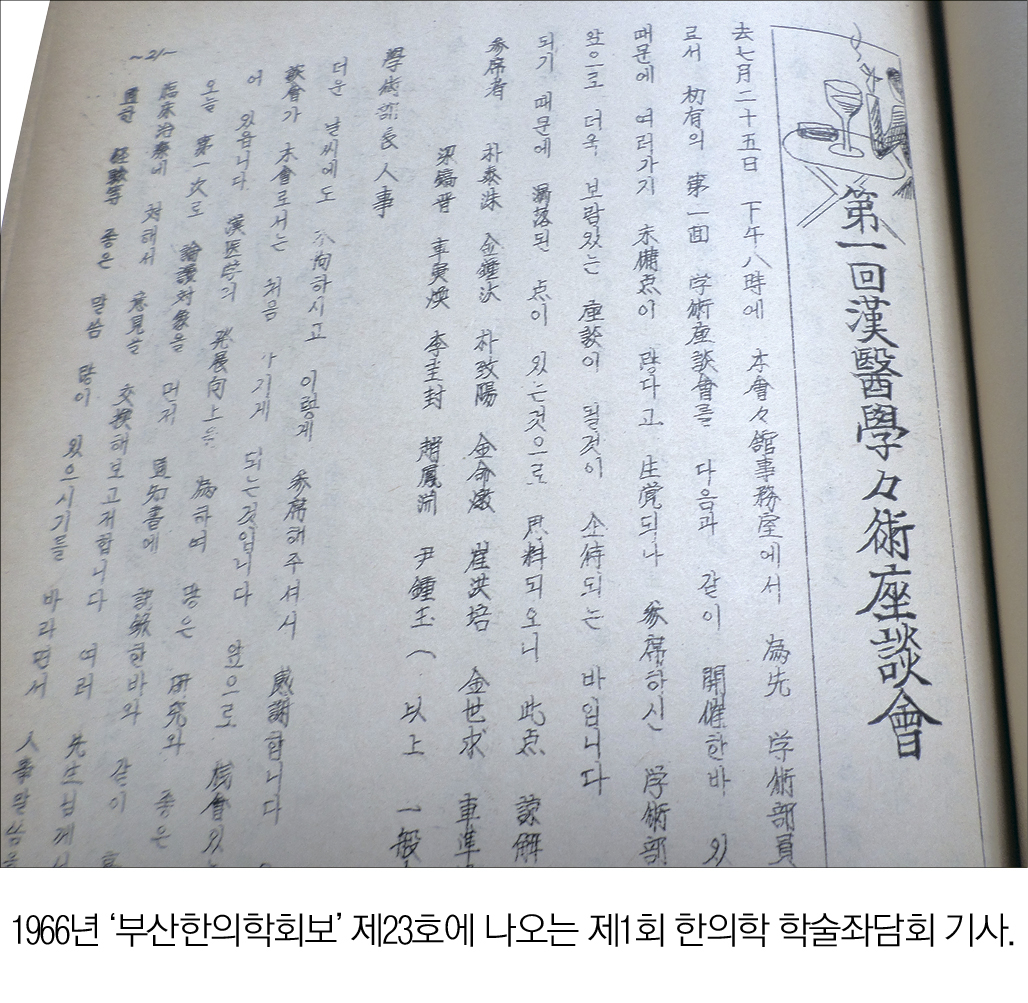 第一回漢醫學々術座談會
去七月二十五日 下午八時에 本會々館事務室에서 為先 学術部員
로서 初有의 第一回 学術座談會를 다음과 같이 開催한바 있
때문에 여러가지 未備点이 많다고 生覚되나 参席하신 学術部
앞으로 더욱 보람있는 座談이 될것이 企待되는 바입니다
되기 때문에 漏落된 点이 있는것으로 思料되오니 此点 諒解
参席者 朴泰洙 金鍾汏 朴致陽 金命燉 崔洪培 金世求 車準
梁鎬晋 車寅煥 李圭封 趙鳳淵 尹鍾玉 ( 以上 一般
學術部長 人事
더운 날씨에도 不拘하시고 이렇게 参席해주셔서 感謝합니다
談會가 本會로서는 처음 가지게 되는것입니다 앞으로 機會있
어 있읍니다 漢医学의 発展向上을 為하여 많은 研究와 좋은
오늘 第一次로 論議対象을 먼저 通知書에 記錄한바와 같이
臨床治療에 対해서 意見을 交換해보고저합니다 여러 先生님께서
豊富한 経験等 좋은 말씀 많이 있으시기를 바라면서 人事말씀을
~21~
1966년 ‘부산한의학회보’ 제23호에 나오는 제1회 한의학 학술좌담회 기사.